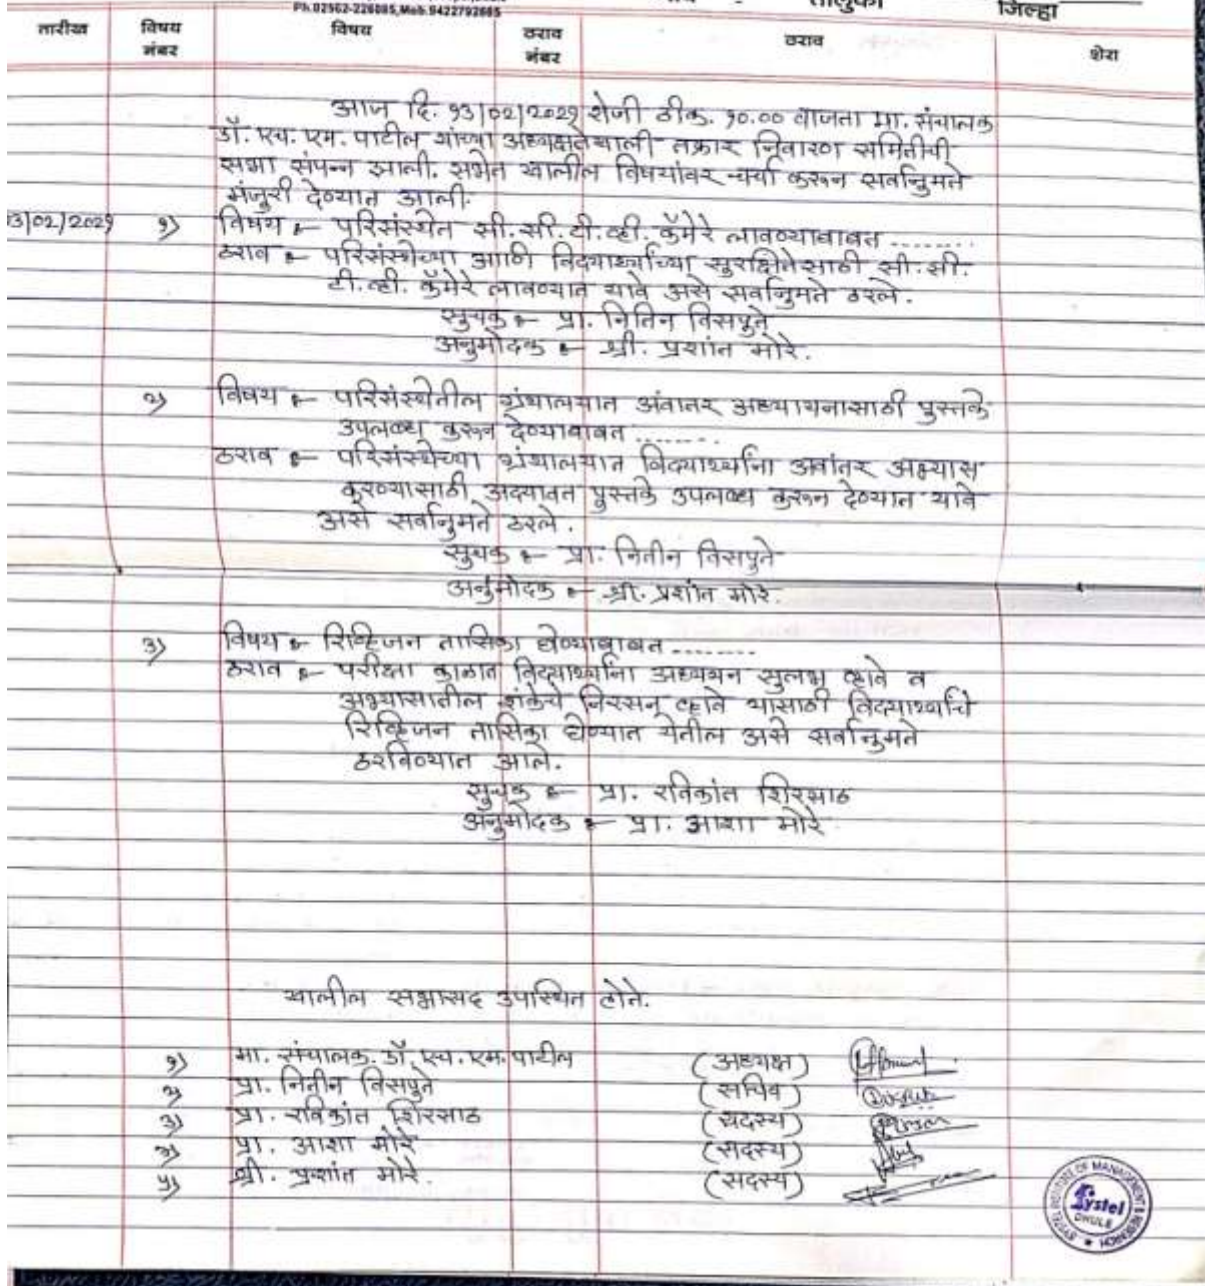 Ph.02562-226085,Mob.9422792865 तालुका जिल्हा
तारीख विषय नंबर विषय ठराव नंबर ठराव शेरा
आज दि. १३/०२/२०२१ रोजी ठीक. १०.०० वाजता मा. संचालक
डॉ. एच. एम. पाटील यांच्या अध्यक्षतेखाली तक्रार निवारण समितीची
सभा संपन्न झाली. सभेत खालील विषयांवर चर्चा करून सर्वानुमते
मंजुरी देण्यात आली.
३/०२/२०२१ १) विषय :- परिसंस्थेत सी.सी.टी.व्ही. कॅमेरे लावण्याबाबत ........
ठराव :- परिसंस्थेच्या आणि विद्यार्थ्यांच्या सुरक्षितेसाठी सी.सी.
टी.व्ही. कॅमेरे लावण्यात यावे असे सर्वानुमते ठरले.
सुचक :- प्रा. नितिन विसपुते
अनुमोदक :- श्री. प्रशांत मोरे.
२) विषय :- परिसंस्थेतील ग्रंथालयात अंवातर अध्यायनासाठी पुस्तके
उपलब्ध करून देण्याबाबत ........
ठराव :- परिसंस्थेच्या ग्रंथालयात विद्यार्थ्यांना अवांतर अभ्यास
करण्यासाठी अदयावत पुस्तके उपलब्ध करून देण्यात यावे
असे सर्वानुमते ठरले.
सुचक :- प्रा. नितीन विसपुते
अनुमोदक :- श्री. प्रशांत मोरे.
३) विषय :- रिव्हिजन तासिका घेण्याबाबत ........
ठराव :- परीक्षा काळात विद्यार्थ्यांना अध्ययन सुलभ व्हावे व
अभ्यासातील शंकेचे निरसन व्हावे यासाठी विद्यार्थ्यांचे
रिव्हिजन तासिका घेण्यात येतील असे सर्वानुमते
ठरविण्यात आले.
सुचक :- प्रा. रविकांत शिरसाठ
अनुमोदक :- प्रा. आशा मोरे
खालील सभासद उपस्थित होते.
१) मा. संचालक. डॉ. एच. एम. पाटील (अध्यक्ष)
२) प्रा. नितीन विसपुते (सचिव)
३) प्रा. रविकांत शिरसाठ (सदस्य)
४) प्रा. आशा मोरे (सदस्य)
५) श्री. प्रशांत मोरे. (सदस्य)
SYSTEL INSTITUTE OF MANAGEMENT & RESEARCH
Systel
DHULE